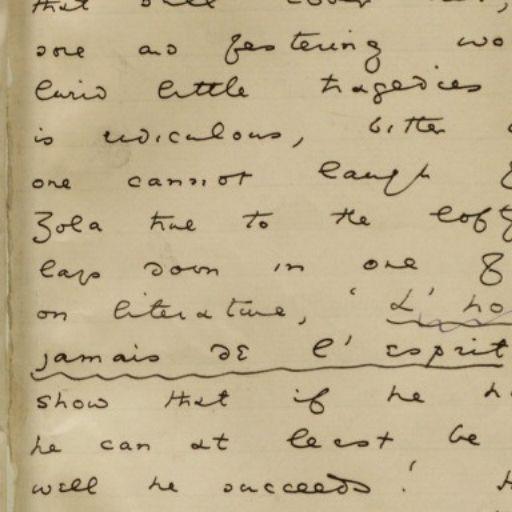 that
sore and festering wo
lurid little tragedies
is ridiculous, bitter
one cannot laugh
Zola true to the loft
lays down in one
on literature, 'L'ho
jamais de l'esprit
show that if he h
he can at least be
well he succeeds!